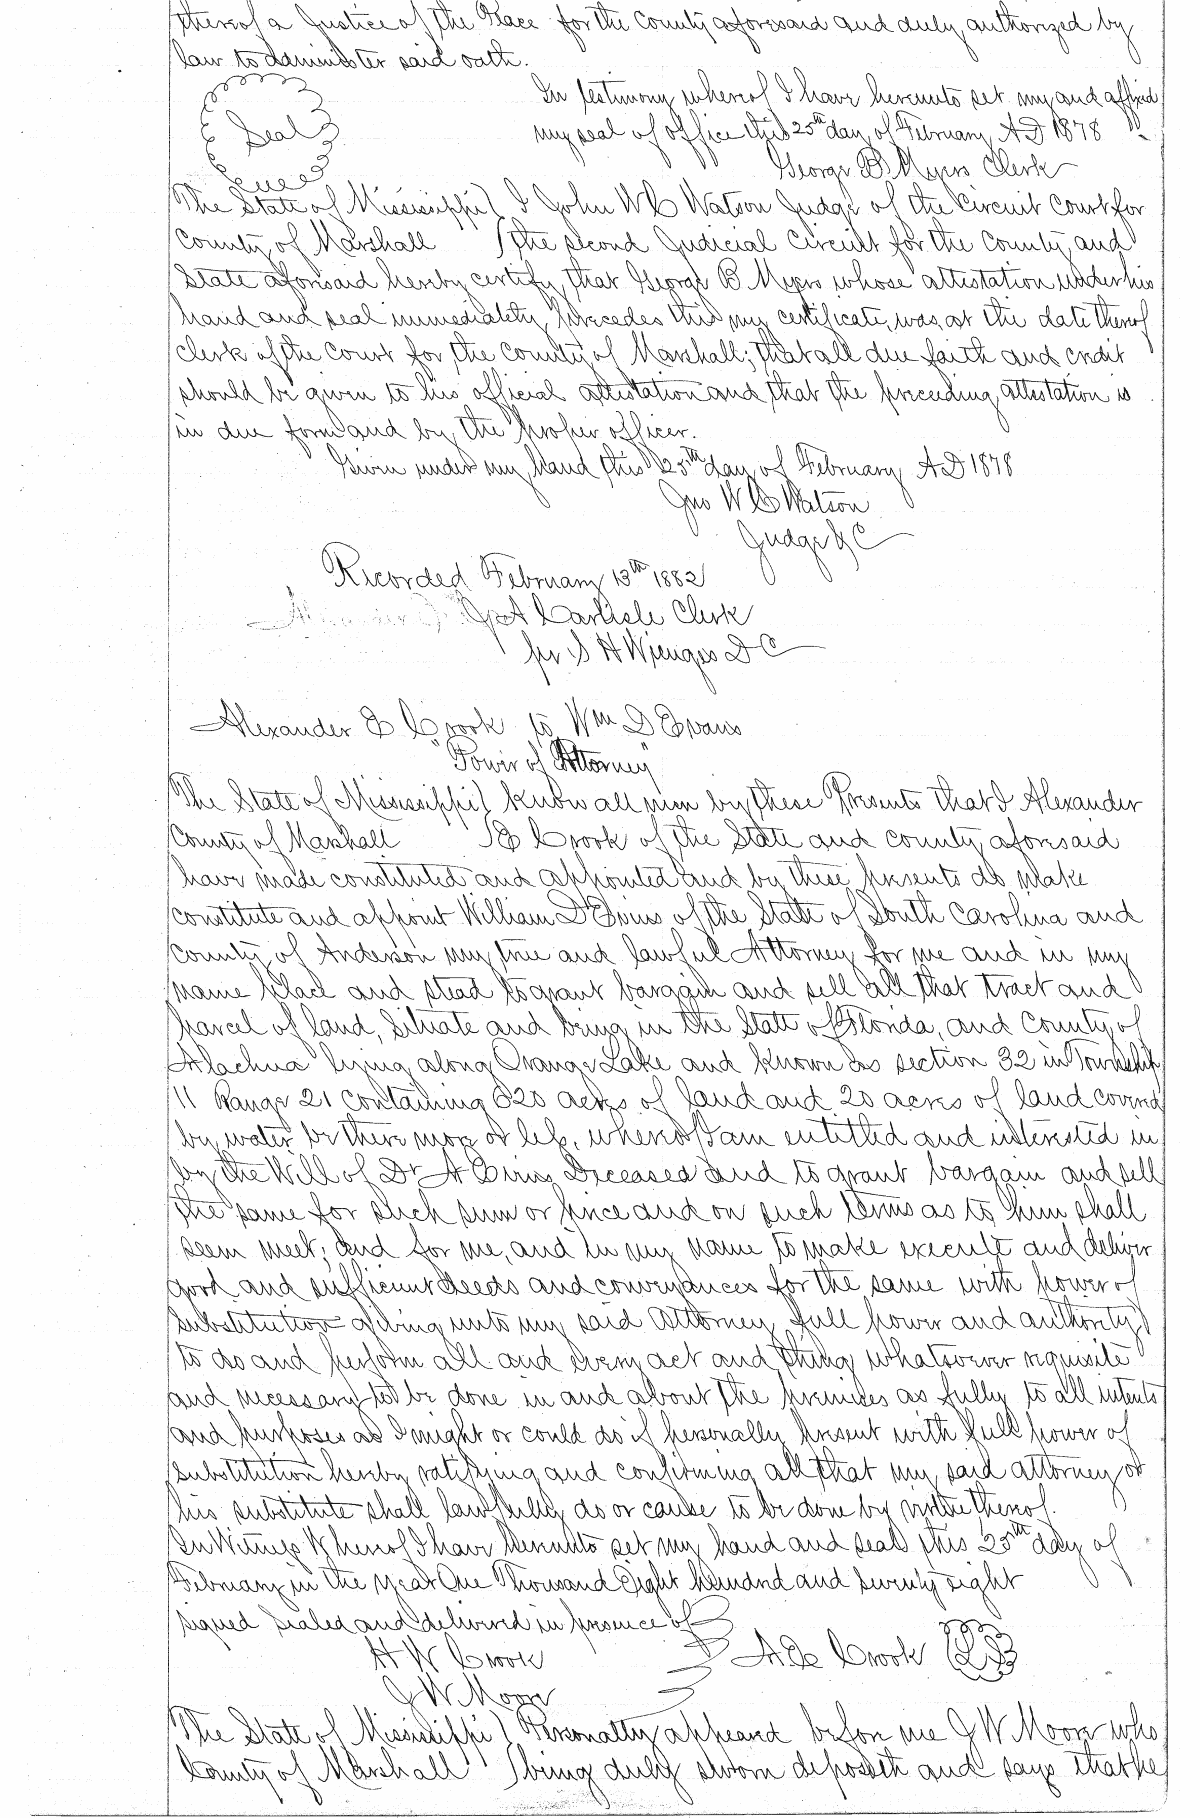 thereof a Justice of the Peace for the County aforesaid and duly authorized by
law to administer said oath.
Seal
In testimony whereof I have hereunto set my and affixed
my seal of office this 25th day of February AD 1878
George B Myers Clerk
The State of Mississippi } I John W C Watson Judge of the Circuit Court for
County of Marshall } the second Judicial Circuit for the County and
State aforesaid hereby certify, that George B Myers whose attestation under his
hand and seal immediately precedes this my certificate, was, at the date thereof
Clerk of the Court for the County of Marshall; that all due faith and credit
should be given to his official attestation and that the preceeding attestation is
in due form and by the proper officer.
Given under my hand this 25th day of February AD 1878
Jno W C Watson
Judge &C
Recorded February 13th 1882
J A Carlisle Clerk
per S H Wienges D C
Alexander E Crook to Wm D Evans
"Power of Attorney"
The State of Mississippi } Know all men by these Presents that I Alexander
County of Marshall } E Crook of the State and county aforesaid
have made constituted and appointed and by these presents do make
constitute and appoint William D Evins of the State of South Carolina and
County of Anderson my true and lawful Attorney for me and in my
name place and stead to grant bargain and sell all that tract and
parcel of land, Situate and being in the State of Florida, and County of
Alachua lying along Orange Lake and known as section 32 in Township
11 Range 21 containing 620 acres of land and 20 acres of land covered
by water be there more or less, whereof I am entitled and interested in
by the Will of Dr A Evins Deceased and to grant bargain and sell
the same for such sum or price and on such terms as to him shall
seem meet; and for me, and in my name to make execute and deliver
good and sufficient deeds and conveyances for the same with power of
substitution giving unto my said Attorney full power and authority
to do and perform all and every act and thing whatsoever requisite
and necessary to be done in and about the premises as fully to all intents
and purposes as I might or could do if personally present with full power of
substitution hereby ratifying and confirming all that my said attorney or
his substitute shall lawfully do or cause to be done by virtue thereof.
In Witness Whereof I have hereunto set my hand and seal this 25th day of
February in the year One Thousand Eight hundred and seventy eight
signed sealed and delivered in presence of
H W Crook
A E Crook LS
J W Moore
The State of Mississippi } Personally appeared before me J W Moore who
County of Marshall } being duly sworn deposeth and says that he